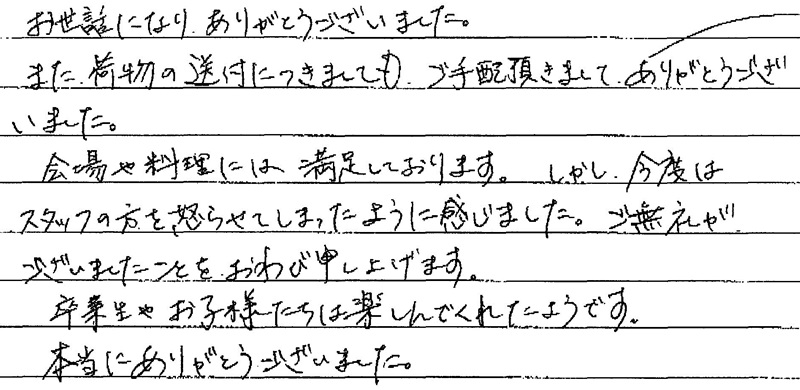 お世話になり、ありがとうございました。
また、荷物の送付につきましても、ご手配頂きまして、ありがとうござ
いました。
会場や料理には、満足しております。しかし、今度は
スタッフの方を怒らせてしまったように感じました。ご無礼が
ございましたことを、おわび申し上げます。
卒業生や、お子様たちは楽しんでくれたようです。
本当にありがとうございました。